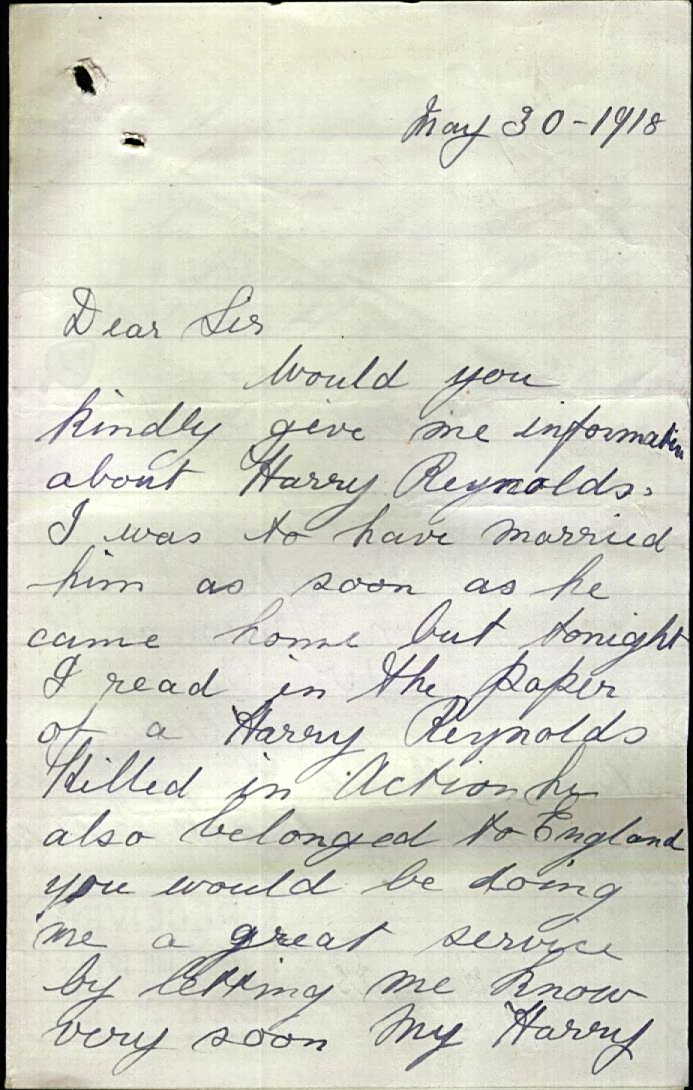 May 30-1918
Dear Sir
Would you
kindly give me information
about Harry Reynolds.
I was to have married
him as soon as he
came home but tonight
I read in the paper
of a Harry Reynolds
Killed in Action he
also belonged to England
you would be doing
me a great service
by letting me know
very soon My Harry